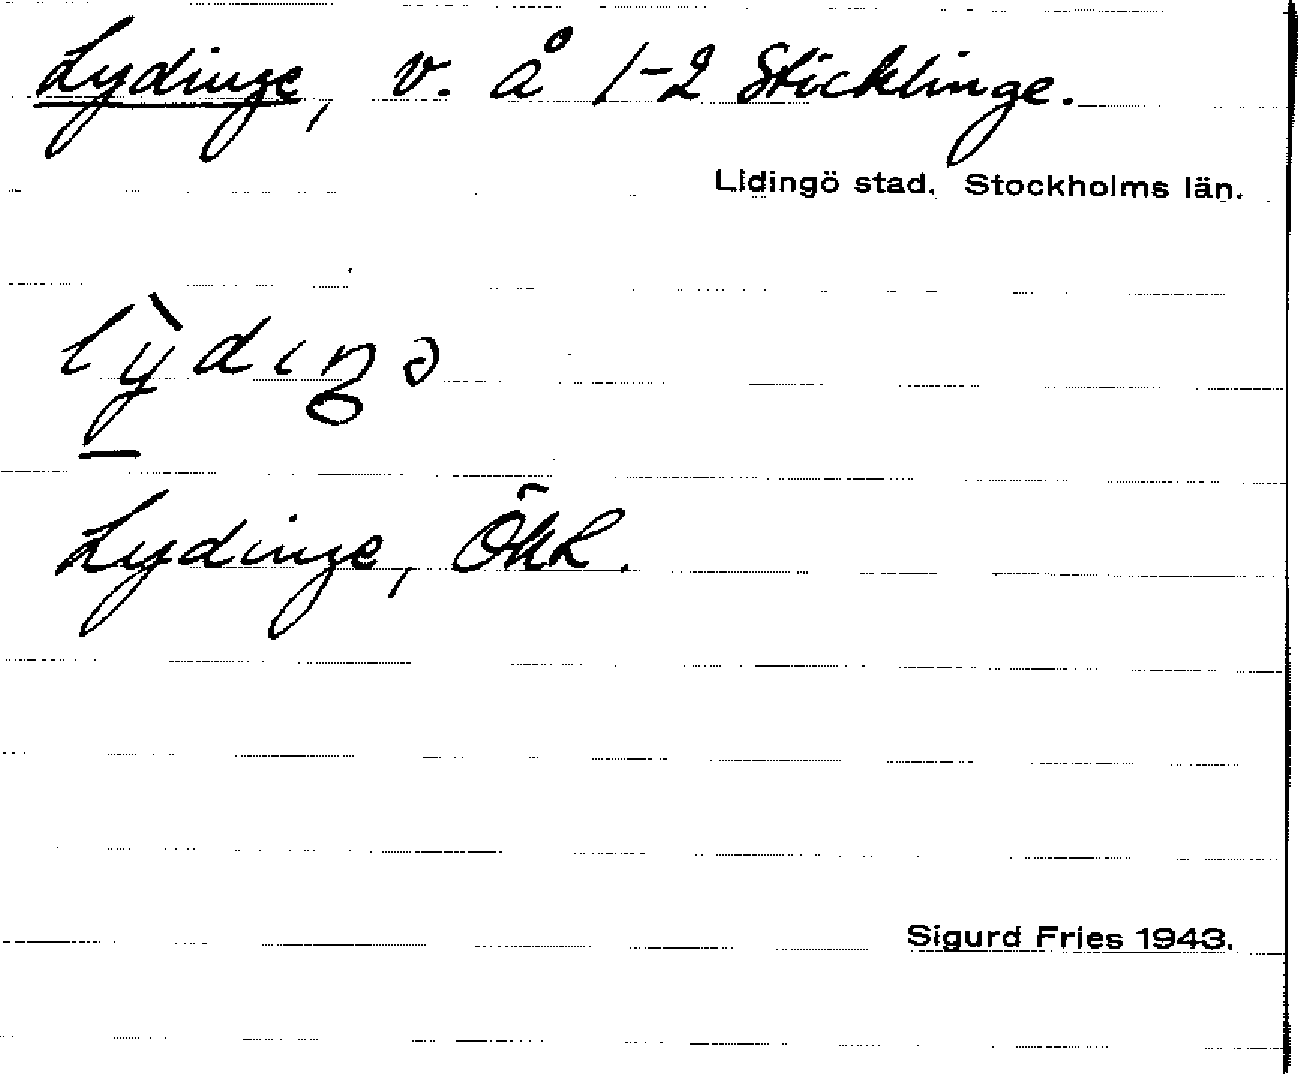 Lydinge, v. å 1-2 Sticklinge.
Lidingö stad. Stockholms län.
lỳdıŋə
Lydinge, ÖKR.
Sigurd Fries 1943.